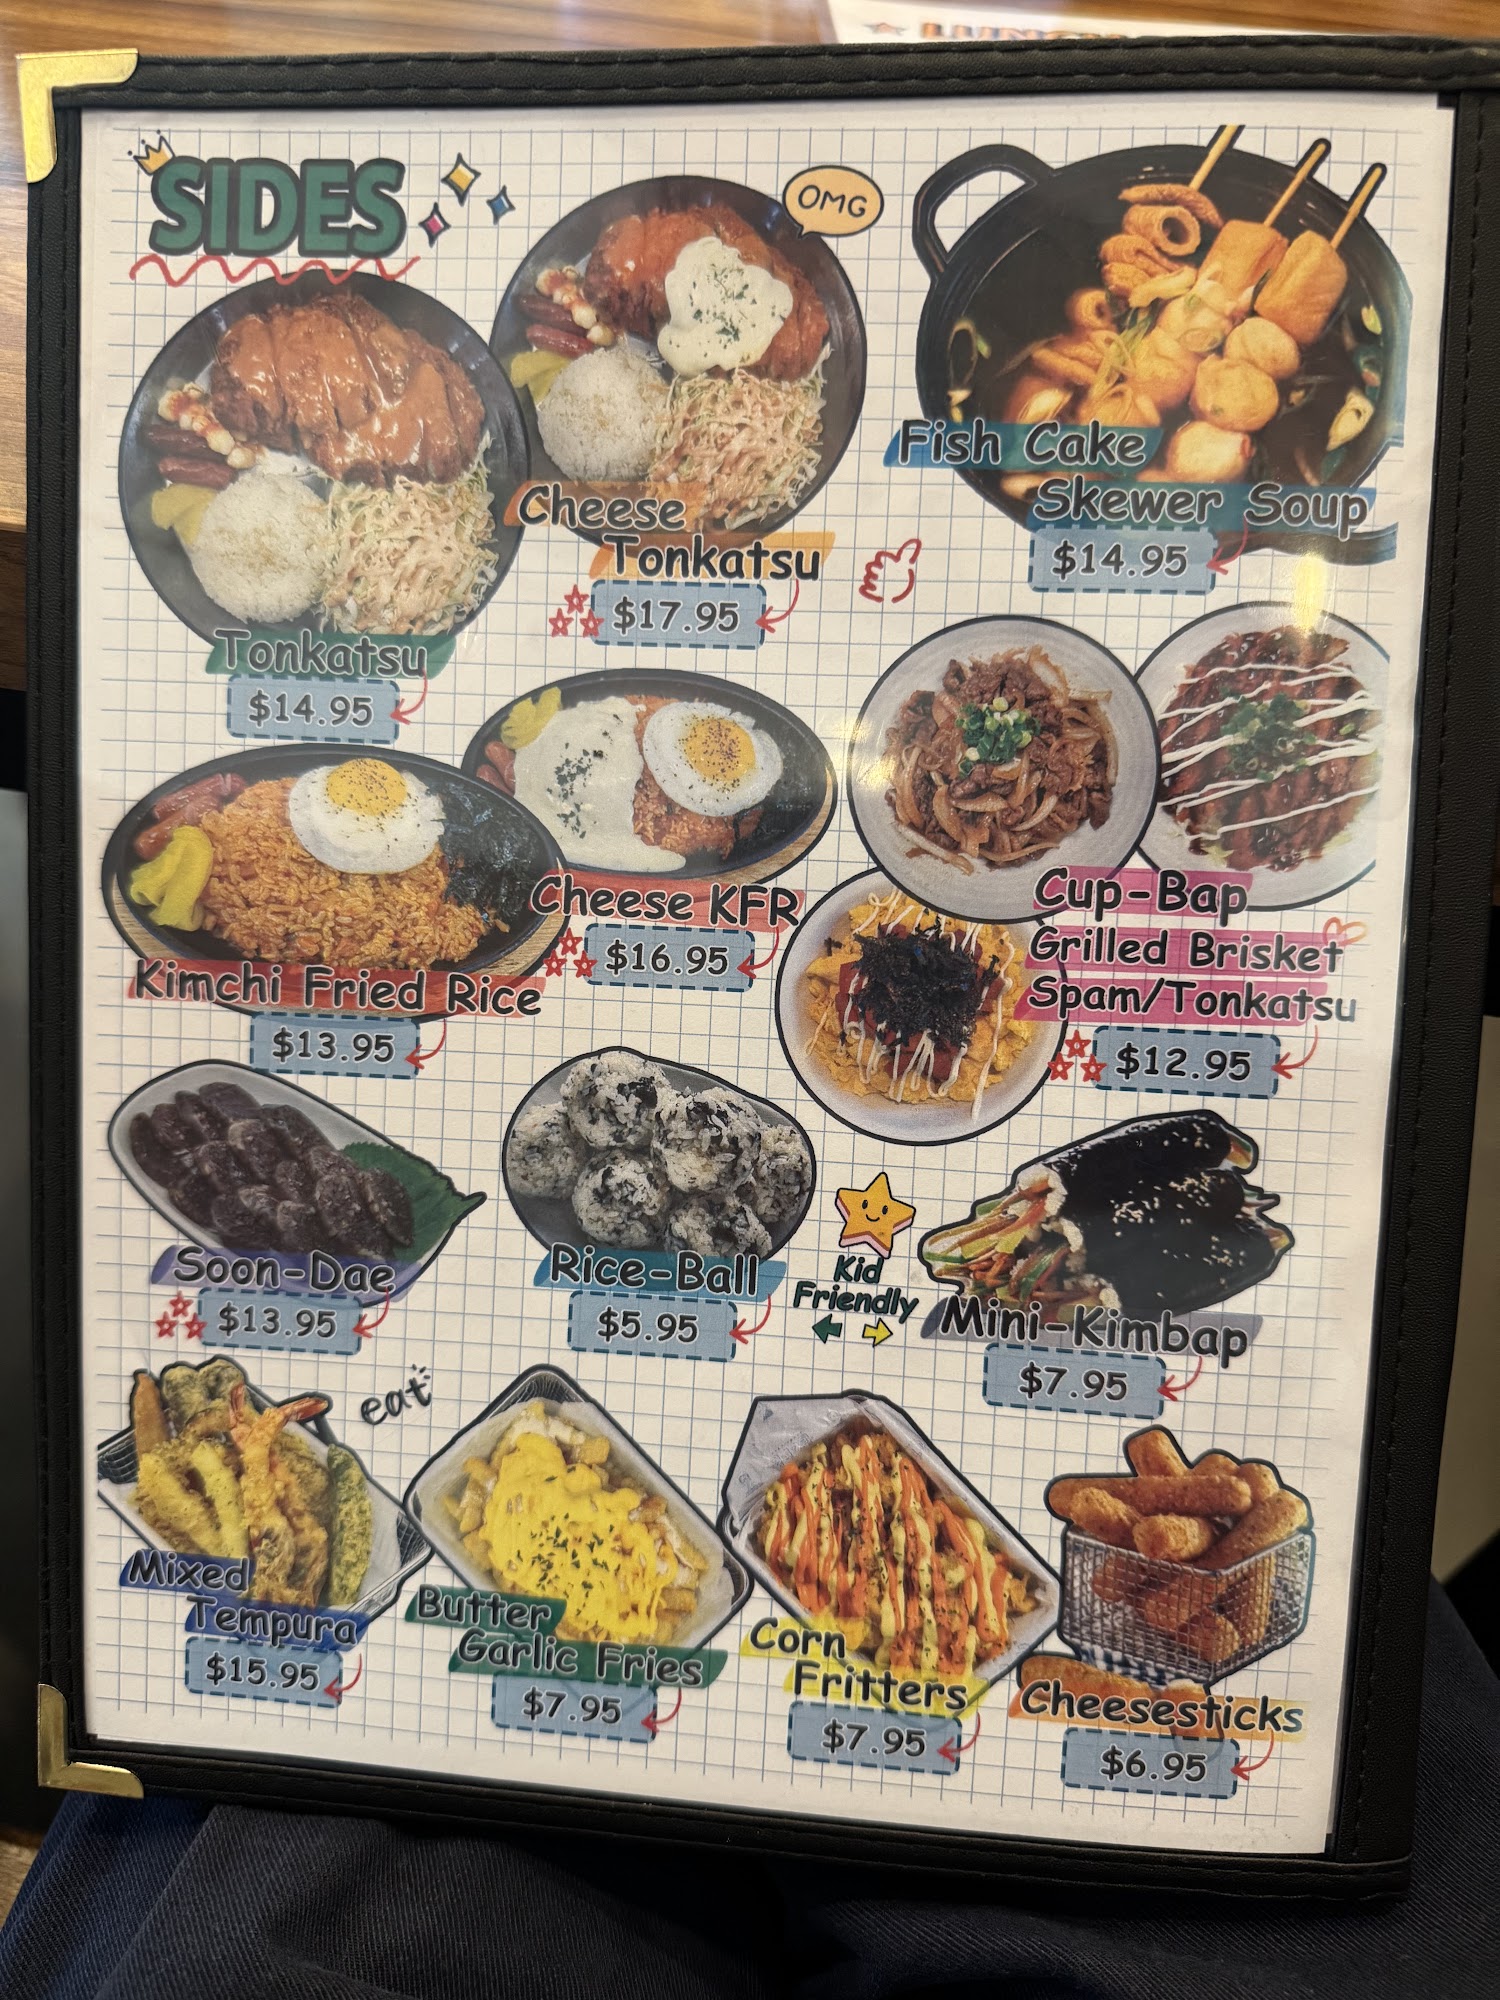 SIDES
OMG
Fish Cake
Skewer Soup
$14.95
Cheese
Tonkatsu
$17.95
Tonkatsu
$14.95
Cheese KFR
$16.95
Cup-Bap
Grilled Brisket
Spam/Tonkatsu
$12.95
Kimchi Fried Rice
$13.95
Soon-Dae
$13.95
Rice-Ball
$5.95
Kid
Friendly
Mini-Kimbap
$7.95
eat
Mixed
Tempura
$15.95
Butter
Garlic Fries
$7.95
Corn
Fritters
$7.95
Cheesesticks
$6.95